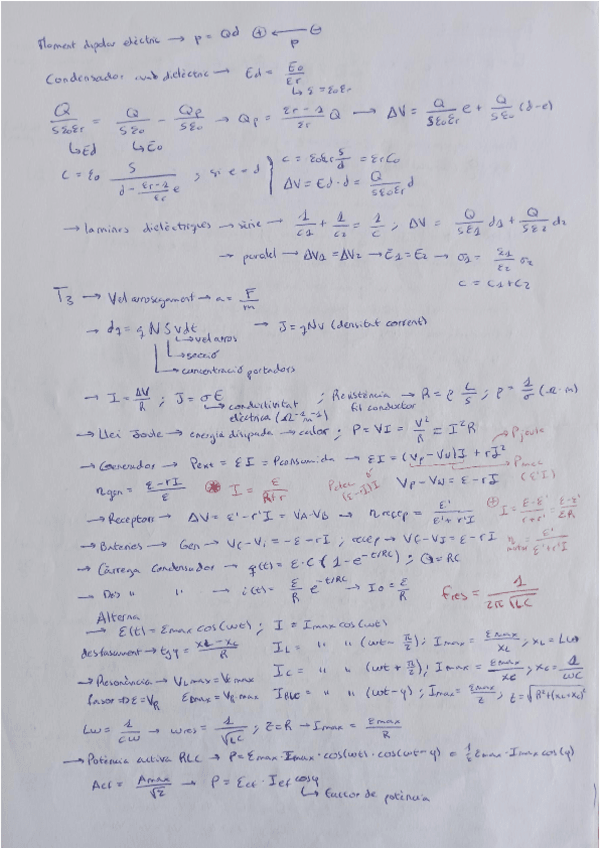 Moment dipolar elèctric → p = Qd ⊕ ←— ⊖ p
Condensador amb dielèctric → Ed = E0/εr
↳ ε = ε0εr
Q/Sε0εr = Q/Sε0 - Qp/Sε0 → Qp = (εr-1)/εr Q → ΔV = Q/Sε0εr e + Q/Sε0 (d-e)
↳Ed ↳E0
C = ε0 S/(d - (εr-1)/εr e) ; si e=d
C = ε0εr S/d = εrC0
ΔV = Ed·d = Q/Sε0εr d
→ làmines dielèctriques → sèrie → 1/C1 + 1/C2 = 1/C ; ΔV = Q/Sε1 d1 + Q/Sε2 d2
→ paral·lel → ΔV1 = ΔV2 → E1 = E2 → σ1 = ε1/ε2 σ2
C = C1+C2
T3 → Vel arrossegament → a = F/m
→ dq = qNSvdt → J = qNv (densitat corrent)
↳ vel arros
↳ secció
concentració portadors
→ I = ΔV/R ; J = σE ; Resistència → R = ρ L/S ; ρ = 1/σ (Ω·m)
↳ conductivitat elèctrica (Ω⁻¹m⁻¹) fil conductor
→ Llei Joule → energia dissipada → calor ; P = VI = V²/R = I²R
→ Generador → Pext = εI = Pconsumida → εI = (Vp-VN)I + rI² → P joule
ηgen = (ε-rI)/ε I = ε/(R+r) (ε-rI)I Vp-VN = ε-rI (ε'I)
→ Receptors → ΔV = ε'-r'I = VA-VB → ηrecep = ε'/(ε'+r'I) I = (ε-ε')/(r+r') = (ε-ε')/ΣRi
→ Bateries → Gen → = -ε-rI ; recep → = ε-rI η motor = ε'/(ε'+r'I)
→ Càrrega condensador → q(t) = ε·C(1-e^-t/RC) ; = RC
→ Des " " → i(t) = ε/R e^-t/RC → I0 = ε/R fres = 1/(2π√LC)
Alterna
→ ε(t) = εmax cos(ωt) ; I = Imax cos(ωt)
desfasament → tgφ = (XL-XC)/R IL = " " (ωt-π/2) ; Imax = εmax/XL ; XL = Lω
IC = " " (ωt+π/2) ; Imax = εmax/XC ; XC = 1/ωC
→ Resonància → VLmax = VCmax
fasor → ε=VR εmax = VR max IRLC = " " (ωt-φ) ; Imax = εmax/Z ; Z = √R²+(XL-XC)²
Lω = 1/Cω → ωres = 1/√LC ; Z=R → Imax = εmax/R
→ Potència activa RLC → P = εmax·Imax·cos(ωt)·cos(ωt-φ) = 1/2 εmax·Imax cos(φ)
Aef = Amax/√2 → P = εef·Ief cosφ
↳ factor de potència